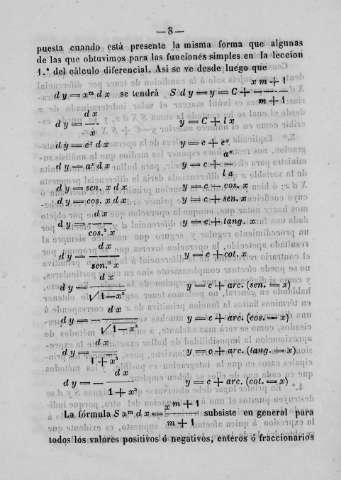 —8—
puesta cuando está presente la misma forma que algunas
de las que obtuvimos para las funciones simples en la leccion
1.ª del cálculo diferencial. Asi se ve desde luego que
x m+1
d y=xᵐ d x se tendrá S d y=y=C+———
m+1
d x
d y=—— y=C+l x
x
d y=eˣ d x y=c+eˣ
aˣ
d y=aˣ d x y=c+—
l a
d y=sen. x d x y=c+cos. x
d y=cos. x d x y=c+sen. x
d x
d y=—— y=c+tang. x
cos.² x
d x
d y=—— y=c+cot. x
sen.² x
d x
d y=—— y=c+arc. (sen.=x)
√1—x²
d x
d y=—— y=c+arc. (cos.=x)
√1—x²
d x
d y=—— y=c+arc. (tang.=x)
1+x²
d x
d y=—— y=c+arc. (cot.=x)
1+x²
x m+1
La fórmula S xᵐ d x=——— subsiste en general para
m+1
todos los valores positivos ó negativos, enteros ó fraccionarios